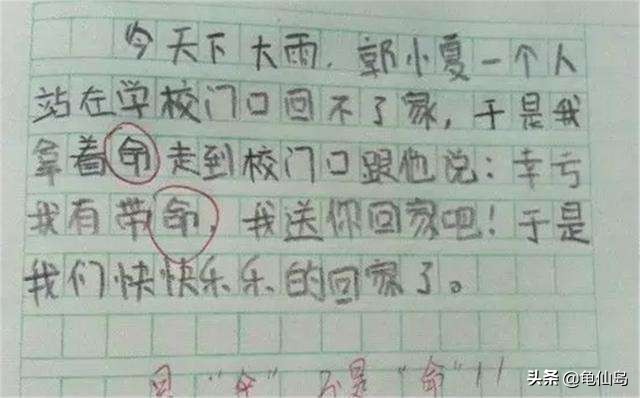 今天下大雨，郭小夏一个人
站在学校门口回不了家，于是我
拿着命走到校门口跟他说：幸亏
我有带命，我送你回家吧！于是
我们快快乐乐的回家了。
是“伞”不是“命”！！
头条 @龟仙岛